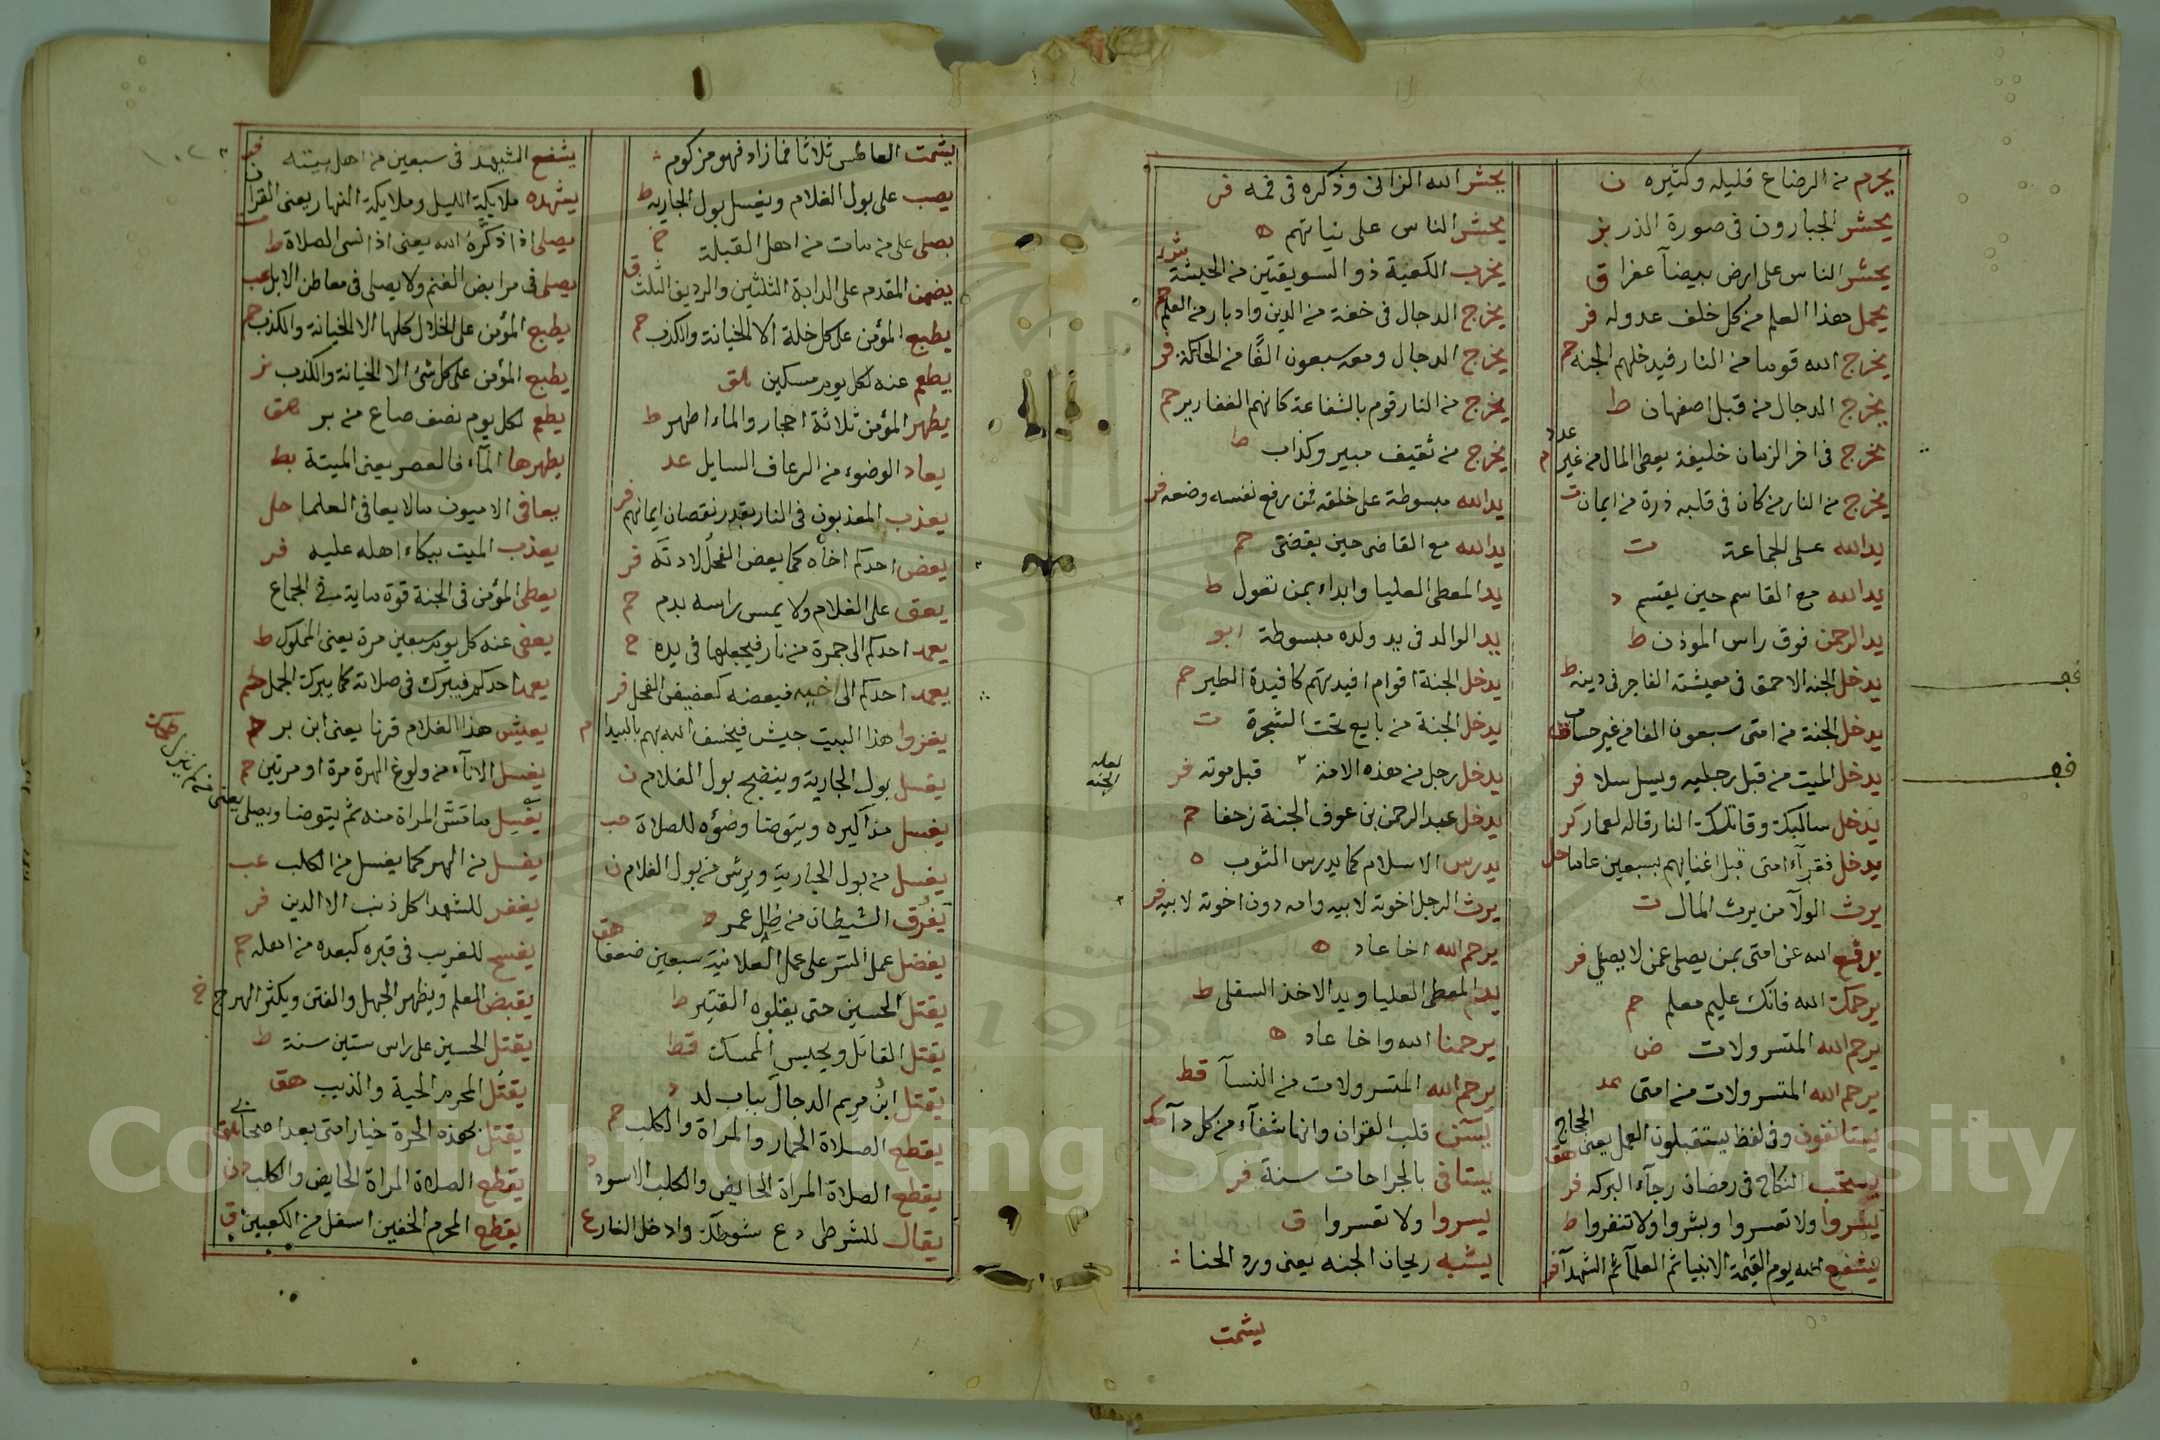 يحرم من الرضاع قليله وكثيره ن
يحشر الجبارون في صورة الذر بز
يحشر الناس على ارض بيضآ عفرا ق
يحمل هذا العلم من كل خلف عدوله فر
يخرج الله قوما من النار فيدخلهم الجنة حم
يخرج الدجال من قبل اصفهان ط
يخرج في اخر الزمان خليفة يعطى المال من غير عدد م
يخرج من النار من كان في قلبه ذرة من ايمان ت
يد الله على الجماعة ت
يد الله مع القاسم حين يقسم د
يد الرحمن فوق راس الموذن ط
يدخل الجنة الاحمق في معيشته الفاجر في دينه ط
يدخل الجنة من امتى سبعون الفا من غير حساب قط
يدخل الميت من قبل رجليه ويسل سلا فر
يدخل سالبك وقاتلك النار قاله لعمار كر
يدخل فقرآء امتى قبل اغنيائهم بسبعين عاما حل
يرث الولآ من يرث المال ت
يدفع الله عن امتى بمن يصلى عمن لا يصلي فر
يرحمك الله فانك عليم معلم حم
يرحم الله المتسرولات ض
يرحم الله المتسرولات من امتى عد
يستانفون وفي لفظ يستقبلون العمل يعنى الحجاج هق
يستحب النكاح في رمضان رجآء البركه فر
يسروا ولا تعسروا وبشروا ولا تنفروا ط
يشفع الله يوم القيمة الانبيا ثم العلمآ ثم الشهدآ فر
يحشر الله الزانى وذكره في فمه فر
يحشر الناس على نياتهم ه
يخرب الكعبة ذو السويقتين من الحبشة
يخرج الدجال في خفة من الدين وادبار من العلم حم
يخرج الدجال ومعه سبعون الفًا من الحاكة فر
يخرج من النار قوم بالشفاعة كانهم الثعارير حم
يخرج من ثقيف مبير وكذاب ط
يد الله مبسوطة على خلقه فمن رفع نفسه وضعه فر
يد الله مع القاضى حين يقضى حم
يد المعطى العليا وابداء بمن تعول ط
يد الوالد في يد ولده مبسوطة ابو
يدخل الجنة اقوام افيدتهم كافيدة الطير حم
يدخل الجنة من بايع تحت الشجرة ت
يدخل رجل من هذه الامة قبل موته فر
لعله الجنه
يدخل عبد الرحمن بن عوف الجنة زحفا حم
يدرس الاسلام كما يدرس الثوب ه
يرث الرجل اخوته لابيه وامه دون اخوته لابيه فر
يرحم الله اخا عاد ه
يد المعطى العليا ويد الاخذ السفلى ط
يرحمنا الله واخا عاد ه
يرحم الله المتسرولات من النسآ قط
يسٓ قلب القران وانها شفآء من كل دآ
يستانى بالجراحات سنة فر
يسروا ولا تعسروا ق
يشبه ريحان الجنه يعنى ورد الحنا
يشمت
يشمت العاطس ثلاثا فما زاد فهو مزكوم
يصب على بول الغلام ويغسل بول الجارية ط
يصلى على من مات من اهل القبلة خ
يضمن المقدم على الدابة الثلثين والرديف الثلث
يطبع المؤمن على كل خلة الا الخيانة والكذب حم
يطعم عنه لكل يوم مسكين هق
يطهر المؤمن ثلاثة احجار والماء اطهر ط
يعاد الوضوء من الرعاف السايل عد
يعذب المعذبون في النار بقدر نقصان ايمانهم فر
يعض احدكم اخاه كما يعض الفحل لا دية له فر
يعق على الغلام ولا يمس راسه بدم خ
يعمد احدكم الى جمرة من نار فيجعلها في يده خ
يعمد احدكم الى اخيه فيعضه كعضيض الفحل فر
يغزوا هذا البيت جيش فيخسف الله بهم بالبيدا م
يغسل بول الجارية وينضح بول الغلام ن
يغسل مذاكيره ويتوضا وضوءه للصلاة حب
يغسل من بول الجارية ويرش من بول الغلام ن
يَفْرَق الشيطان من ظل عمر ط
يفضل عمل السر على عمل العلانية سبعين ضعفا هق
يقتل الحسين حتى يعلوه القتير ط
يقتل القاتل ويحبس الممسك قط
يقتل ابن مريم الدجال بباب لد د
يقطع الصلاة الحمار والمراة والكلب حم
يقطع الصلاة المراة الحايض والكلب الاسود د
يقال للشرطى دع سوطك وادخل النار ع
يشفع الشهيد في سبعين من اهل بيته
يشهده ملايكة الليل وملايكة النهار يعنى القران ت
يصلى اذا ذكره الله يعنى اذا نسى الصلاة ط
يصلى في مرابض الغنم ولا يصلى في معاطن الابل عب
يطبع المؤمن على الخلال كلها الا الخيانة والكذب حم
يطبع المؤمن على كل شئ الا الخيانة والكذب بز
يطعم لكل يوم نصف صاع من بر هق
يطهرها المآء فالعصر يعنى الميتة بط
يعافى الاميون مالا يعافى العلما حل
يعذب الميت ببكاء اهله عليه فر
يعطى المؤمن في الجنة قوة ماية في الجماع
يعفى عنه كل يوم سبعين مرة يعنى المملوك ط
يعمد احدكم فيبرك في صلاته كما يبرك الجمل حم
يعيش هذا الغلام قرنا يعنى ابن بر ه
يغسل الانآء من ولوغ الهرة مرة او مرتين حم
يغسل ما مس المراة منه ثم يتوضا ويصلى يعنى من لم ينزل
يغسل من الهر كما يغسل من الكلب عب
يغفر للشهد اكل ذنب الا الدين فر
يفسح للغريب في قبره كبعده من اهله حم
يقبض العلم ويظهر الجهل والفتن ويكثر الهرج خ
يقتل الحسين على راس ستين سنة ط
يقتل المحرم الحية والذيب هق
يقتل بهذه الحرة خيار امتى بعد اصحابى
يقطع الصلاة المراة الحايض والكلب د ن
يقطع المحرم الخفين اسفل من الكعبين ق
Copyright © King Saud University
1957